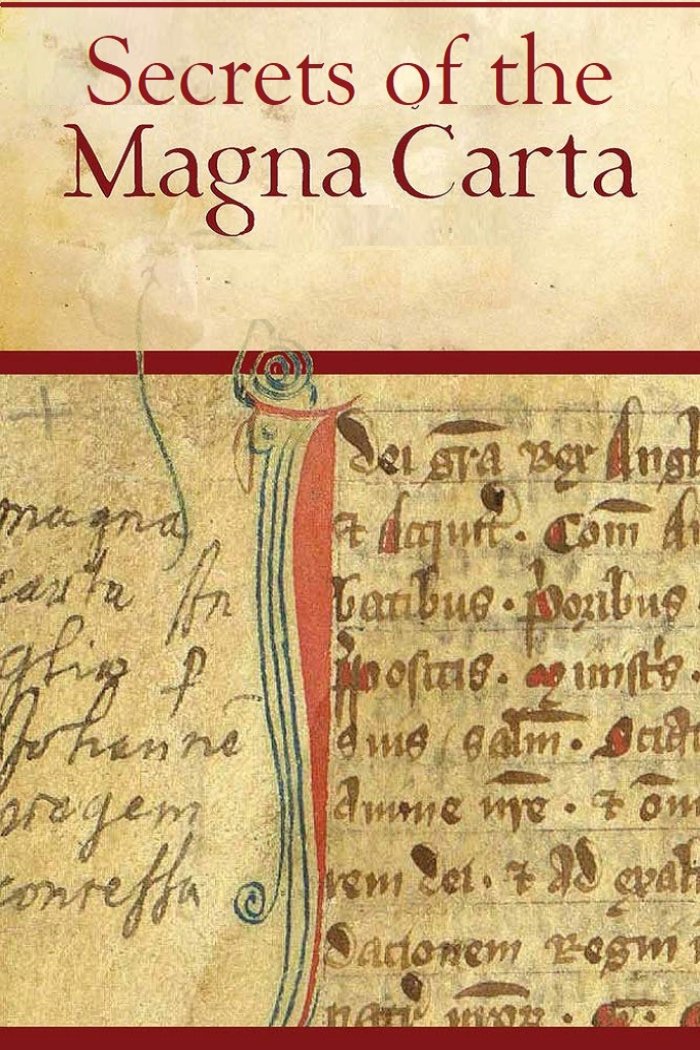 Secrets of the
Magna Carta
magna
carta An
glie p
Johanne
regem
concessa
dei gr̄a Rex Angl
Com̄
batibus · p̄oribus
p̄positis · Minist's ·
suis sal̄m · Scia
Anime nr̄e · ⁊ om̄
rem dei · ⁊ Ad exal
dacionem Regni